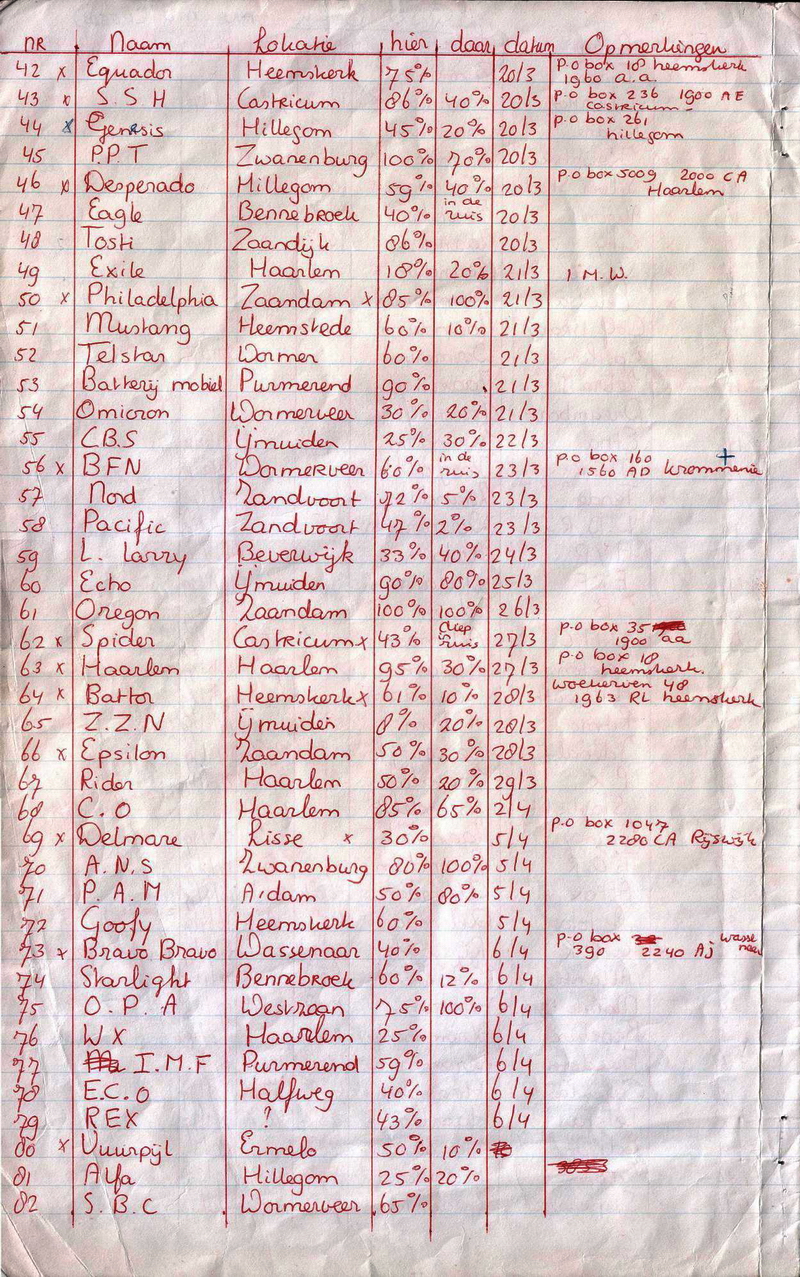 NR Naam Lokatie hier daar datum Opmerkingen
42 x Equador Heemskerk 75% 20/3 p.o box 18 heemskerk
1960 a.a.
43 x S.S H Castricum 86% 40% 20/3 p.o box 236 1900 AE
castricum -
44 x Genesis Hillegom 45% 20% 20/3 p.o box 261
hillegom
45 P.P.T Zwanenburg 100% 70% 20/3
46 x Desperado Hillegom 59% 40% 20/3 p.o box 5009 2000 CA
Haarlem
47 Eagle Bennebroek 40% in de ruis 20/3
48 Tosti Zaandijk 86% 20/3
49 Exile Haarlem 18% 20% 21/3 1 M.W.
50 x Philadelphia Zaandam x 85% 100% 21/3
51 Mustang Heemstede 60% 10% 21/3
52 Telstar Wormer 60% 21/3
53 Batterij mobiel Purmerend 90% 21/3
54 Omicron Wormerveer 30% 20% 21/3
55 C.B.S Ijmuiden 25% 30% 22/3
56 x BFN Wormerveer 60% in de ruis 23/3 p.o box 160 +
1560 AD Krommenie
57 Nord Zandvoort 72% 5% 23/3
58 Pacific Zandvoort 47% 2% 23/3
59 L. Larry Beverwijk 33% 40% 24/3
60 Echo Ijmuiden 90% 80% 25/3
61 Oregon Zaandam 100% 100% 26/3
62 x Spider Castricum x 43% diep ruis 27/3 p.o box 35
1900 aa
63 x Haarlem Haarlem 95% 30% 27/3 p.o box 18
heemskerk.
64 x Battor Heemskerk x 61% 10% 28/3 woekerven 48
1963 RL heemskerk
65 Z.Z.N Ijmuiden 8% 20% 28/3
66 x Epsilon Zaandam 50% 30% 28/3
67 Rider Haarlem 50% 20% 29/3
68 C.O Haarlem 85% 65% 2/4
69 x Delmare Lisse x 30% 5/4 p.o box 1047
2280 CA Rijswijk
70 A.N.S Zwanenburg 80% 100% 5/4
71 P.A.M A'dam 50% 80% 5/4
72 Goofy Heemskerk 60% 5/4
73 x Bravo Bravo Wassenaar 40% 6/4 p.o box
390 2240 Aj wassenaar
74 Starlight Bennebroek 60% 12% 6/4
75 O.P.A Westzaan 75% 100% 6/4
76 W X Haarlem 25% 6/4
77 I.M.F Purmerend 59% 6/4
78 E.C.O Halfweg 40% 6/4
79 REX ? 43% 6/4
80 x Vuurpijl Ermelo 50% 10%
81 Alfa Hillegom 25% 20%
82 S.B.C Wormerveer 65%